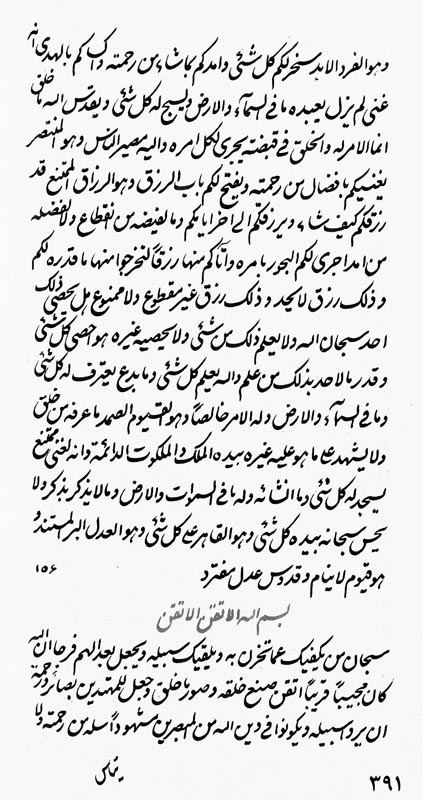 وهو الفرد الابد سخر لكم كل شئ وامدكم كما شاء من رحمته واك كم بالهدى انه
غنى لم يزل يعبده ما فى السمآء والارض ويسبح له كل شئ ويقدس اله ما خلق
انما الامر له والخلق فى قبضته يجرى لكل امره واليه مصير الناس وهو المنتصر
يغنيكم بافضال من رحمته ويفتح لكم باب الرزق وهو الرزاق الممتنع قد
رزقكم كيف شاء ويرزقكم الى اخراياكم وما لفيضه من انقطاع ولا لفضله
من امد اجرى لكم البحور بامره واتاكم منها رزقاً لتخرجوا منها ما قدره لكم
وذلك رزق لا يحد وذلك رزق غير مقطوع ولا ممنوع هل يحصى ذلك
احد سبحان اله ولا يعلم ذلك من شئ ولا يحصيه غيره هو احصى كل شئ
وقدر ما لاحد بذلك من علم واله يعلم كل شئ وما بدع يعترف له كل شئ
وما فى السمآء والارض وله الامر خالصاً وهو القيوم الصمد ما عرفه من خلق
ولا يشهد على ما هو عليه غيره بيده الملك والملكوت الدائمة وانه لغنى ممتنع
يسجد له كل شئ وما انشائه وله ما فى السموات والارض وما لا يذكر بذكر ولا
يحس سبحانه بيده كل شئ وهو القاهر على كل شئ وهو العدل البر المستند و
هو قيوم لا ينام وقدوس عدل مفترد
١٥٦
بسم اله الاتقن الاتقن
سبحان من يكفيك عما تحزن به ويلقيك سبيله ويجعل بعد الهم فرجا ان اله
كان مجيباً قريباً اتقن صنع خلقه وصور ما خلق وجعل للمهتدين بصائر ورحمة
ان يردوا سبيله ويكونوا فى دين اله من المبصرين مشهود واسئله من رحمته ولا
٣٩١